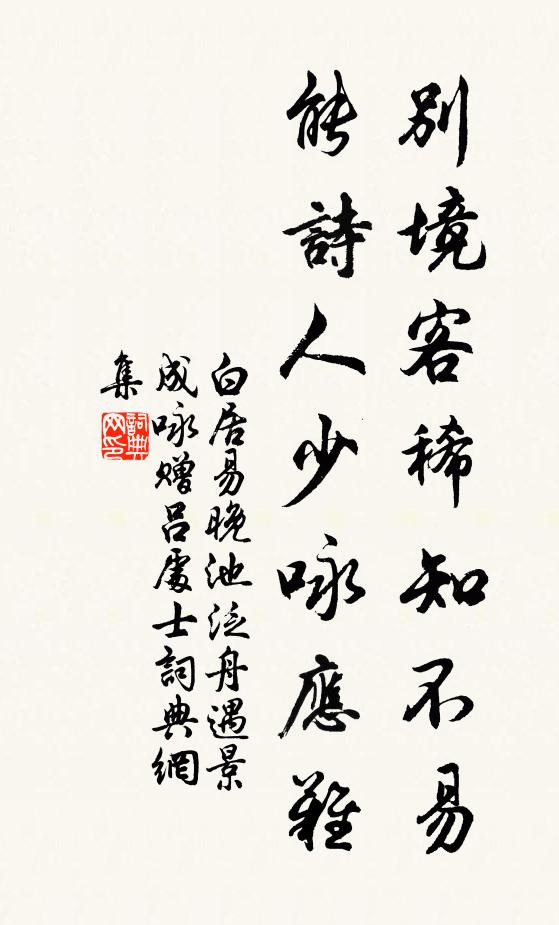 別境客稀知不易
能詩人少咏應難
白居易晚池泛舟遇景
成咏贈呂處士詞典網
集
詞典网印